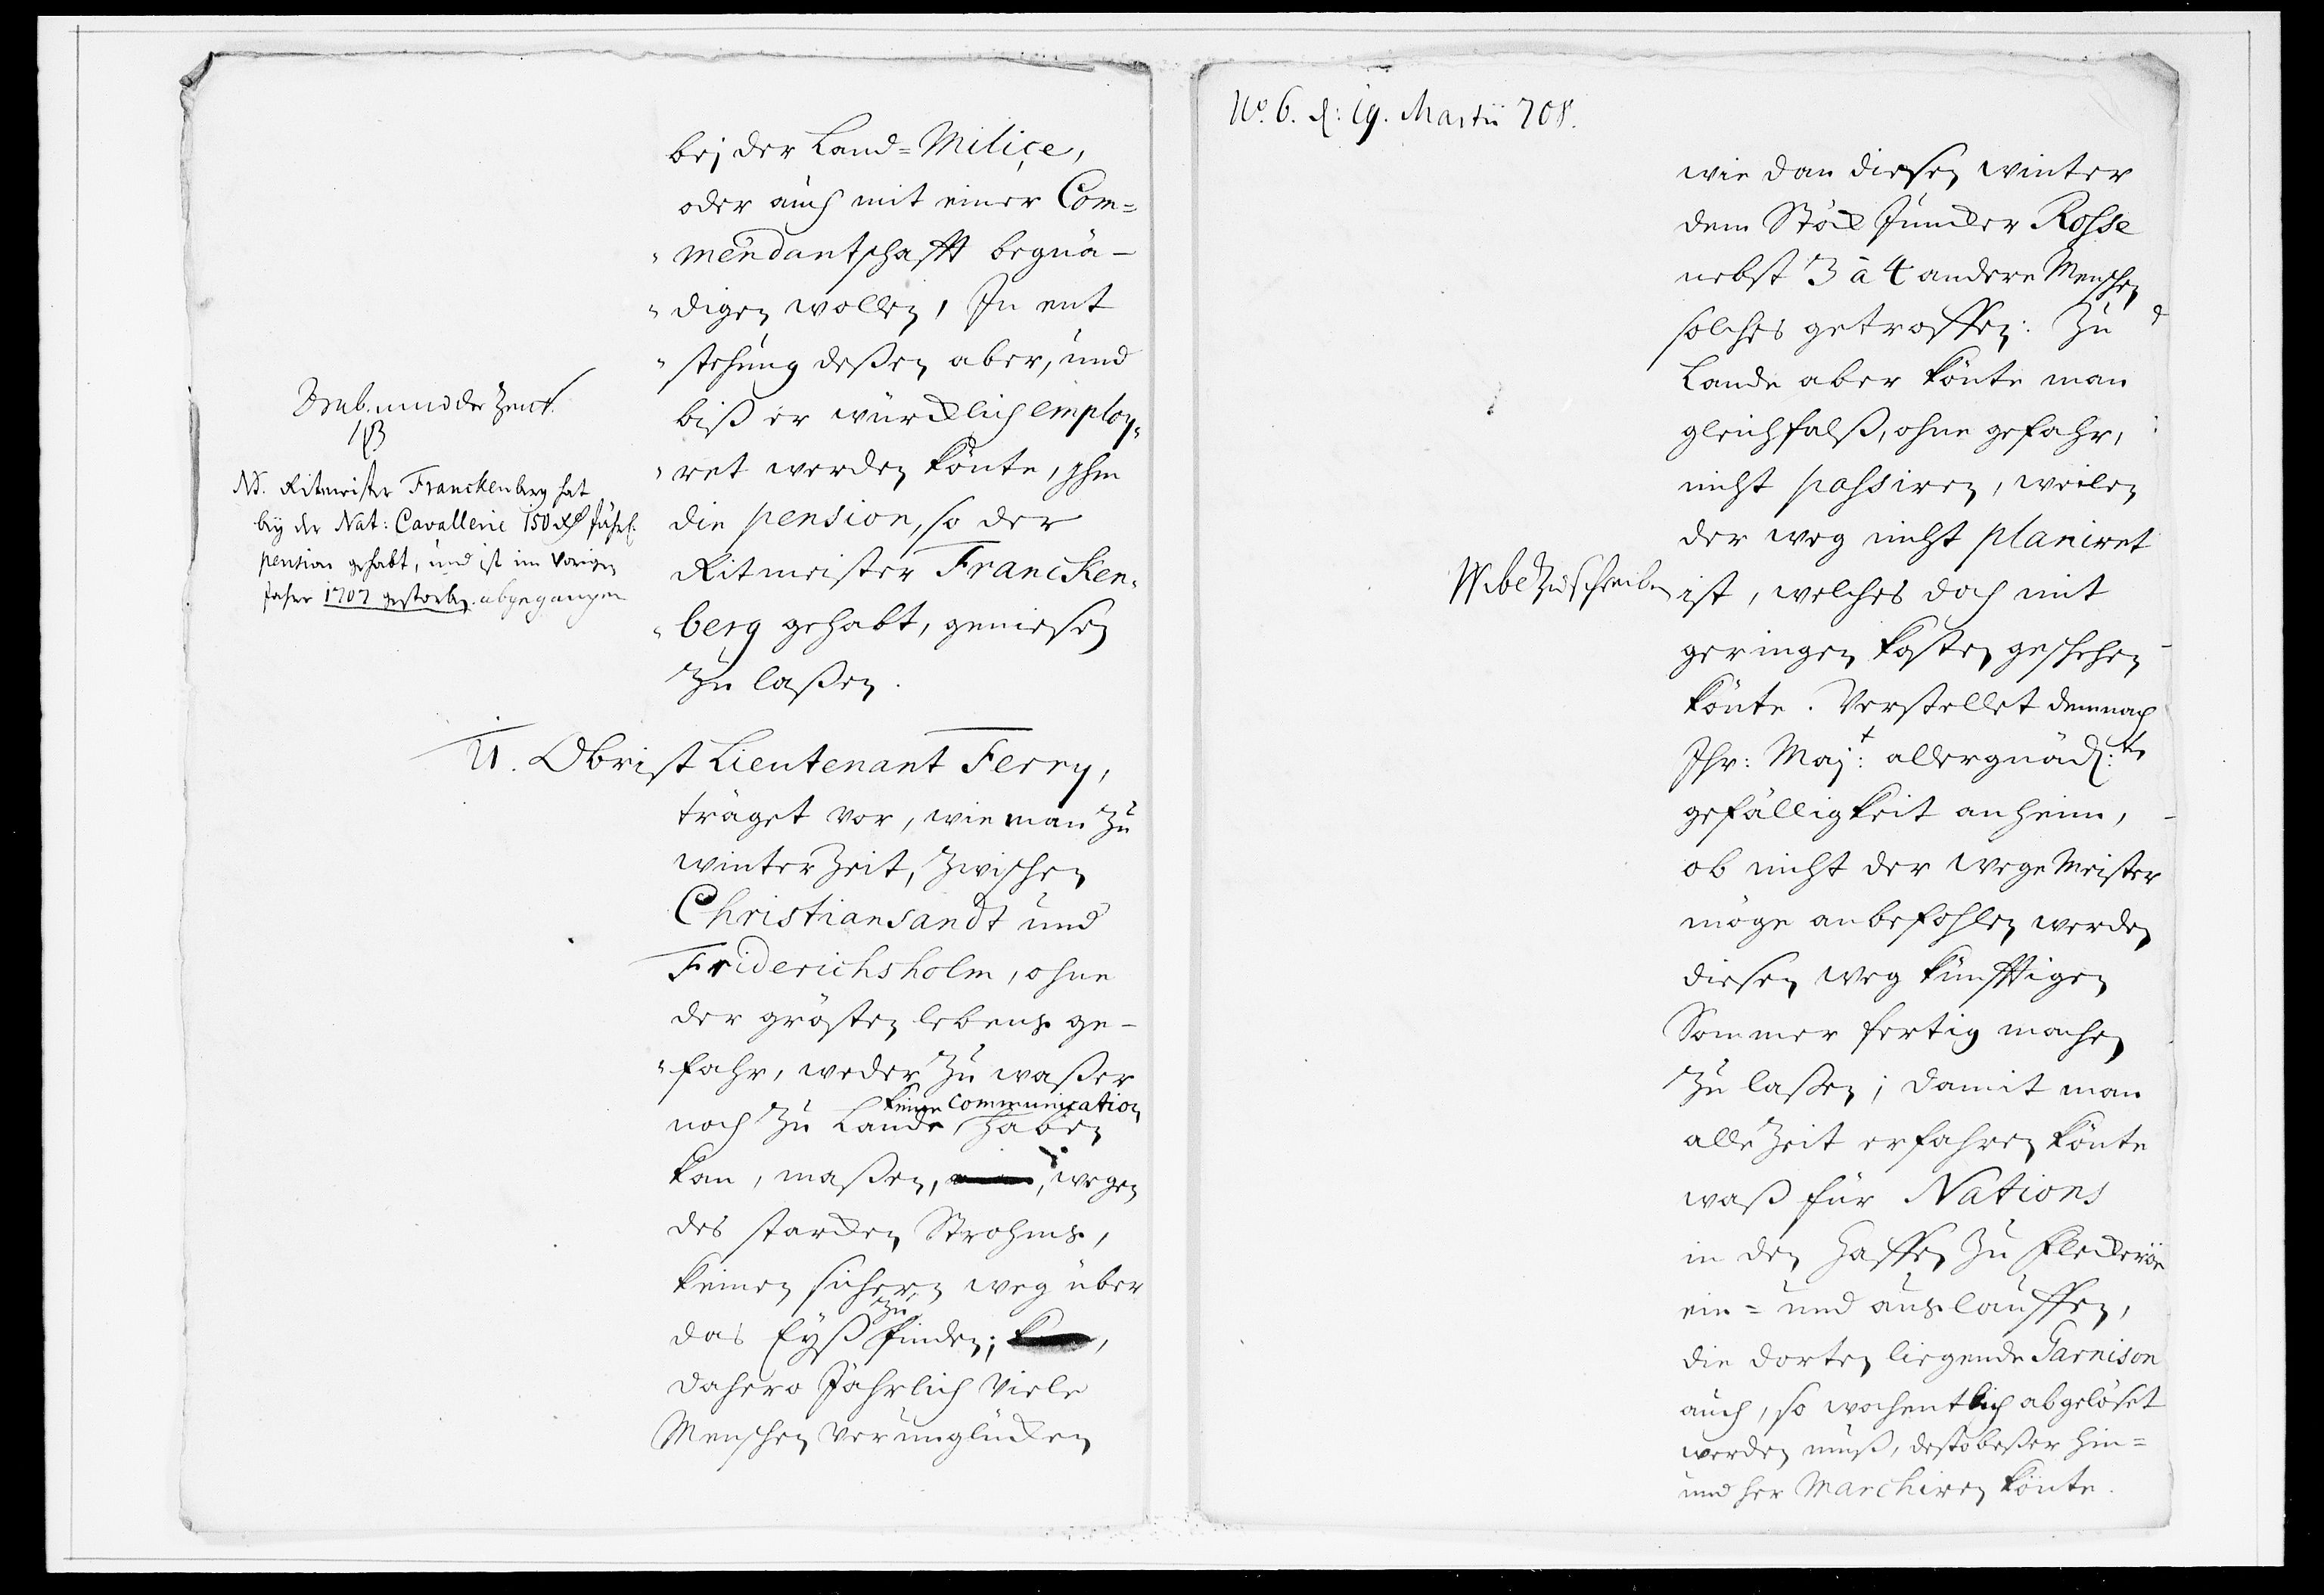 bej der Land=Milice,
oder auch mit einer Com=
"mendantschafft begnä-
"digen wollen, In ent
"stehung deßen aber, und
biß er würcklich employ"
"ret werden könte, Ihm
die pension, so der
Ritmeister Francken"
"berg gehabt, geniesen
Zu laßen.
NB. Ritmeister Franckenberg hat
bey der Nat: Cavallerie 150 Rd Jährl:
pension gehabt, und ist im vorigen
Jahre 1707 gestorben. abgegangen
11. Obrist Lieutenant Ferry,
träget vor, wie man Zu
winter Zeit, Zwischen
Christiansandt und
Friderichsholm, ohne
der grösten lebens ge-
"fahr, weder Zu waßer
keine communication
noch Zu Lande haben
kan, maßen, wegen
des starcken Strohms,
keinen sichern weg über
das Eyß zu finden;
dahero Jährlich viele
Menschen verunglücken
No. 6. d: 19. Martii 708.
wie dan diesen winter
dem Stöck Juncker Rosse
nebst 3 à 4 andere Menschen
solches getroffen: Zu
Lande aber könte man
gleichfalß, ohne gefahr,
nicht passiren, weilen
der weg nicht planiret
ist, welches doch mit
geringen kosten geschehen
könte. Verstellet demnach
Ihr: Maj:t allergnäd:ste
gefälligkeit anheim,
ob nicht der wege Meister
möge anbefohlen werden
diesen weg künfftigen
Sommer fertig machen
Zu laßen; damit man
alle Zeit erfahren könte
waß für Nations
in den Haffen Zu Fleckeröe
ein= und auslauffen,
die dorten liegende Garnison
auch, so wochentlich abgelöset
werden muß, desto beßer hin=
und her Marchiren könte.